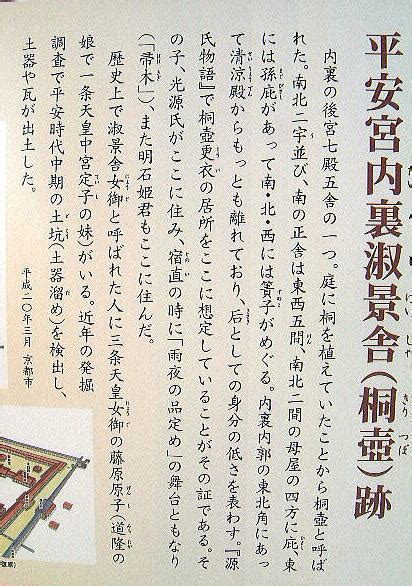 平安宮内裏淑景舎(桐壺)跡
内裏の後宮七殿五舎の一つ。庭に桐を植えていたことから桐壺と呼ば
れた。南北二宇並び、南の正舎は東西五間、南北二間の母屋の四方に庇、東
には孫庇があって南・北・西には簀子がめぐる。内裏内郭の東北角にあっ
て清涼殿からもっとも離れており、后としての身分の低さを表わす。『源
氏物語』で桐壺更衣の居所をここに想定していることがその証である。そ
の子、光源氏がここに住み、宿直の時に「雨夜の品定め」の舞台ともなり
(「帚木」)、また明石姫君もここに住んだ。
歴史上で淑景舎女御と呼ばれた人に三条天皇女御の藤原原子(道隆の
娘で一条天皇中宮定子の妹)がいる。近年の発掘
調査で平安時代中期の土坑(土器溜め)を検出し、
土器や瓦が出土した。
平成二〇年三月 京都市